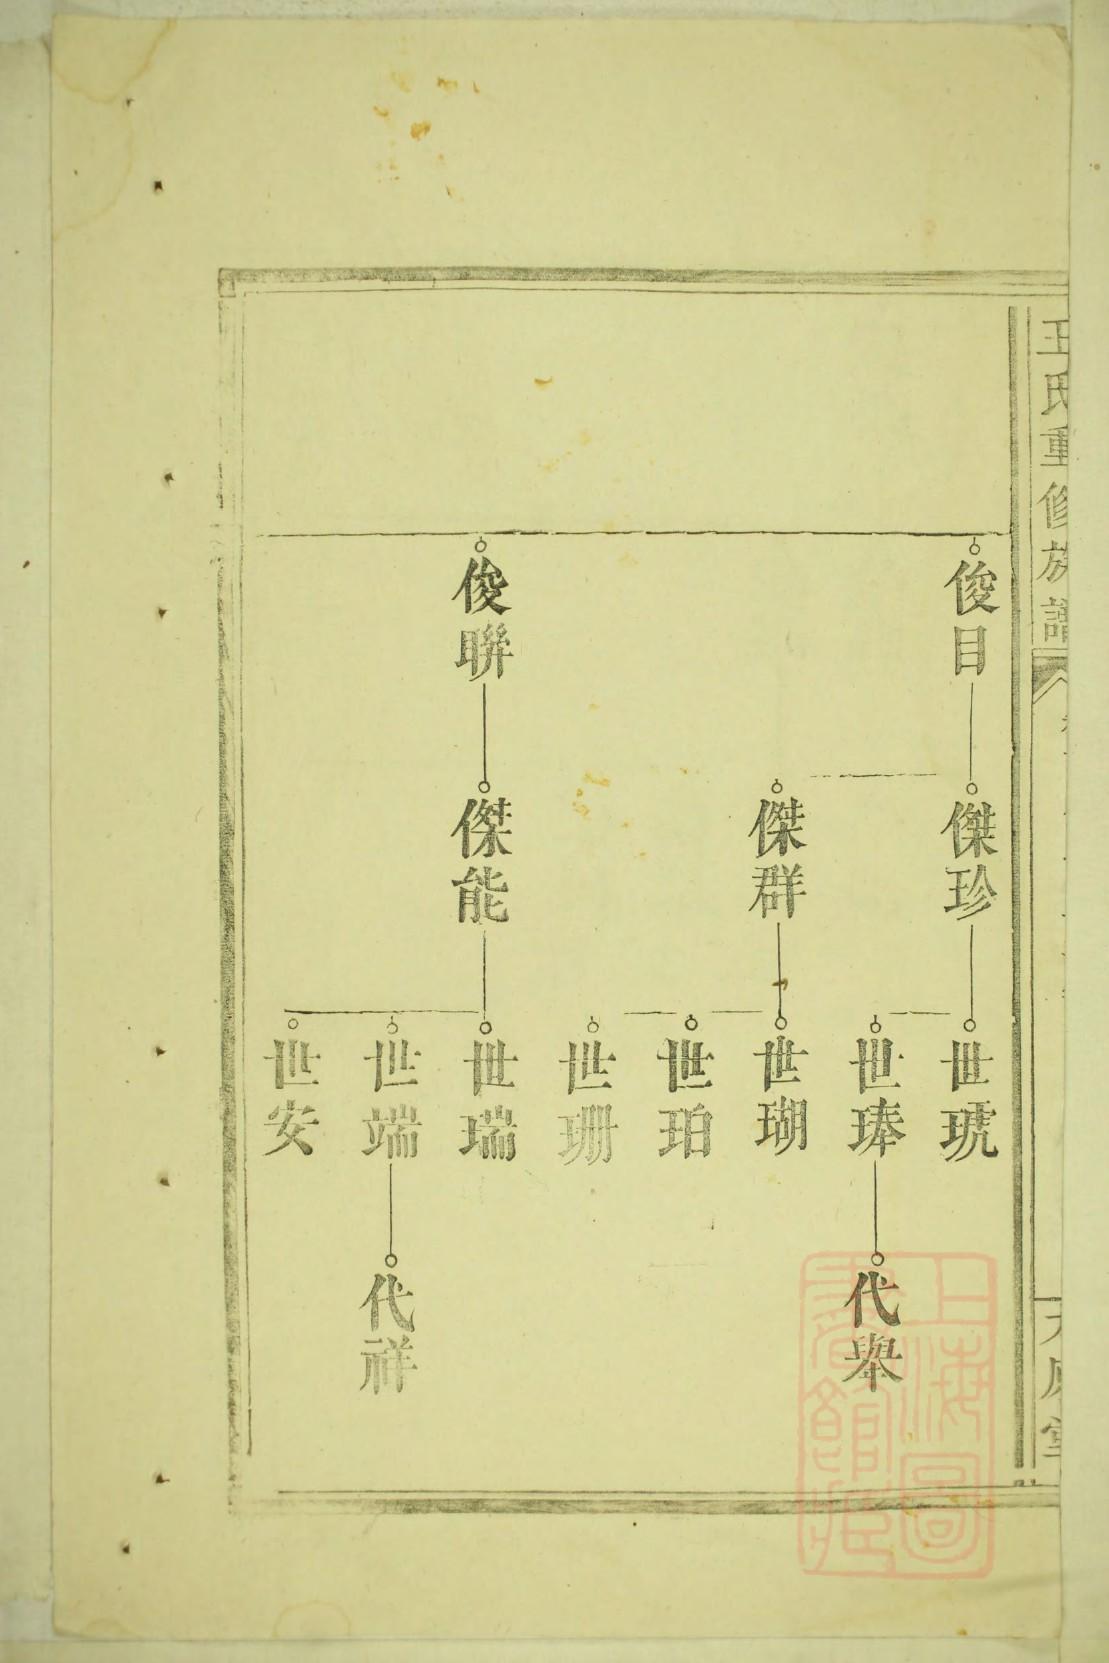 王氏重修族譜
俊目
俊聯
傑珍
傑群
傑能
世琥
世琫
世瑚
世珀
世珊
世瑞
世端
世安
代舉
代祥
上海圖
書館藏